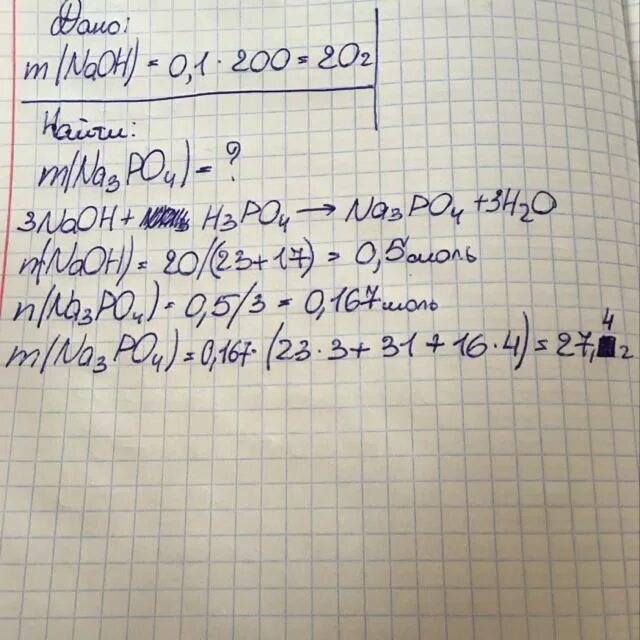 Дано:
m(NaOH) = 0,1 · 200 = 20г
Найти:
m(Na3PO4) = ?
3NaOH + H3PO4 → Na3PO4 + 3H2O
n(NaOH) = 20/(23+17) = 0,5 моль
n(Na3PO4) = 0,5/3 = 0,167 моль
m(Na3PO4) = 0,167 · (23 · 3 + 31 + 16 · 4) = 27,4г